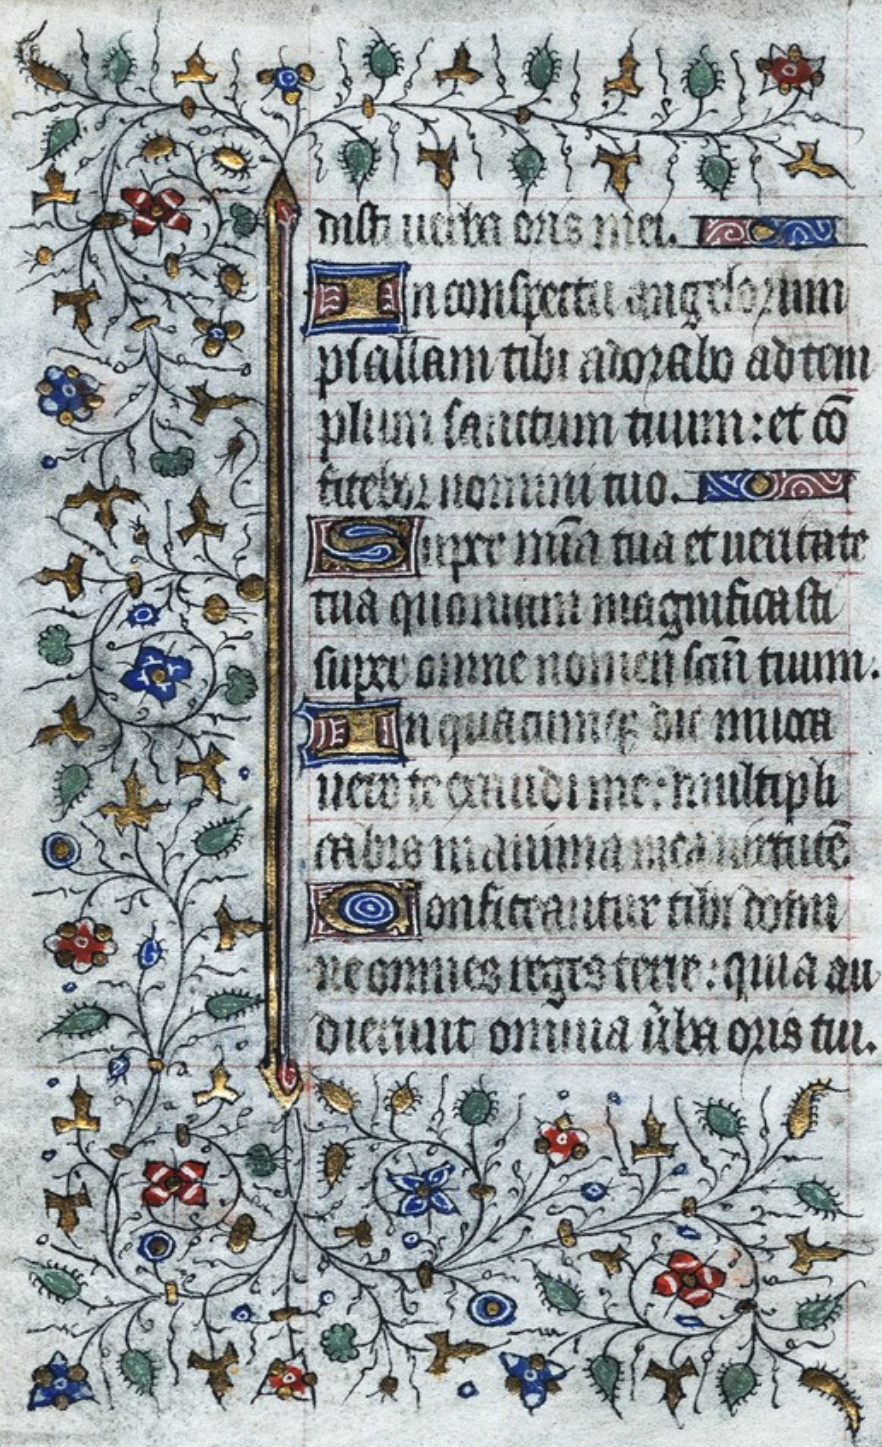 disti verba oris mei.
In conspectu angelorum
psallam tibi adorabo ad tem
plum sanctum tuum: et cō
fitebor nomini tuo.
Super mīa tua et veritate
tua quoniam magnificasti
super omne nomen scm̄ tuum.
In quacumqꝫ die invoca
vero te exaudi me: multipli
cabis in anima mea virtutē
Confiteantur tibi domi
ne omnes reges terre: quia au
dierunt omnia v̄ba oris tui.